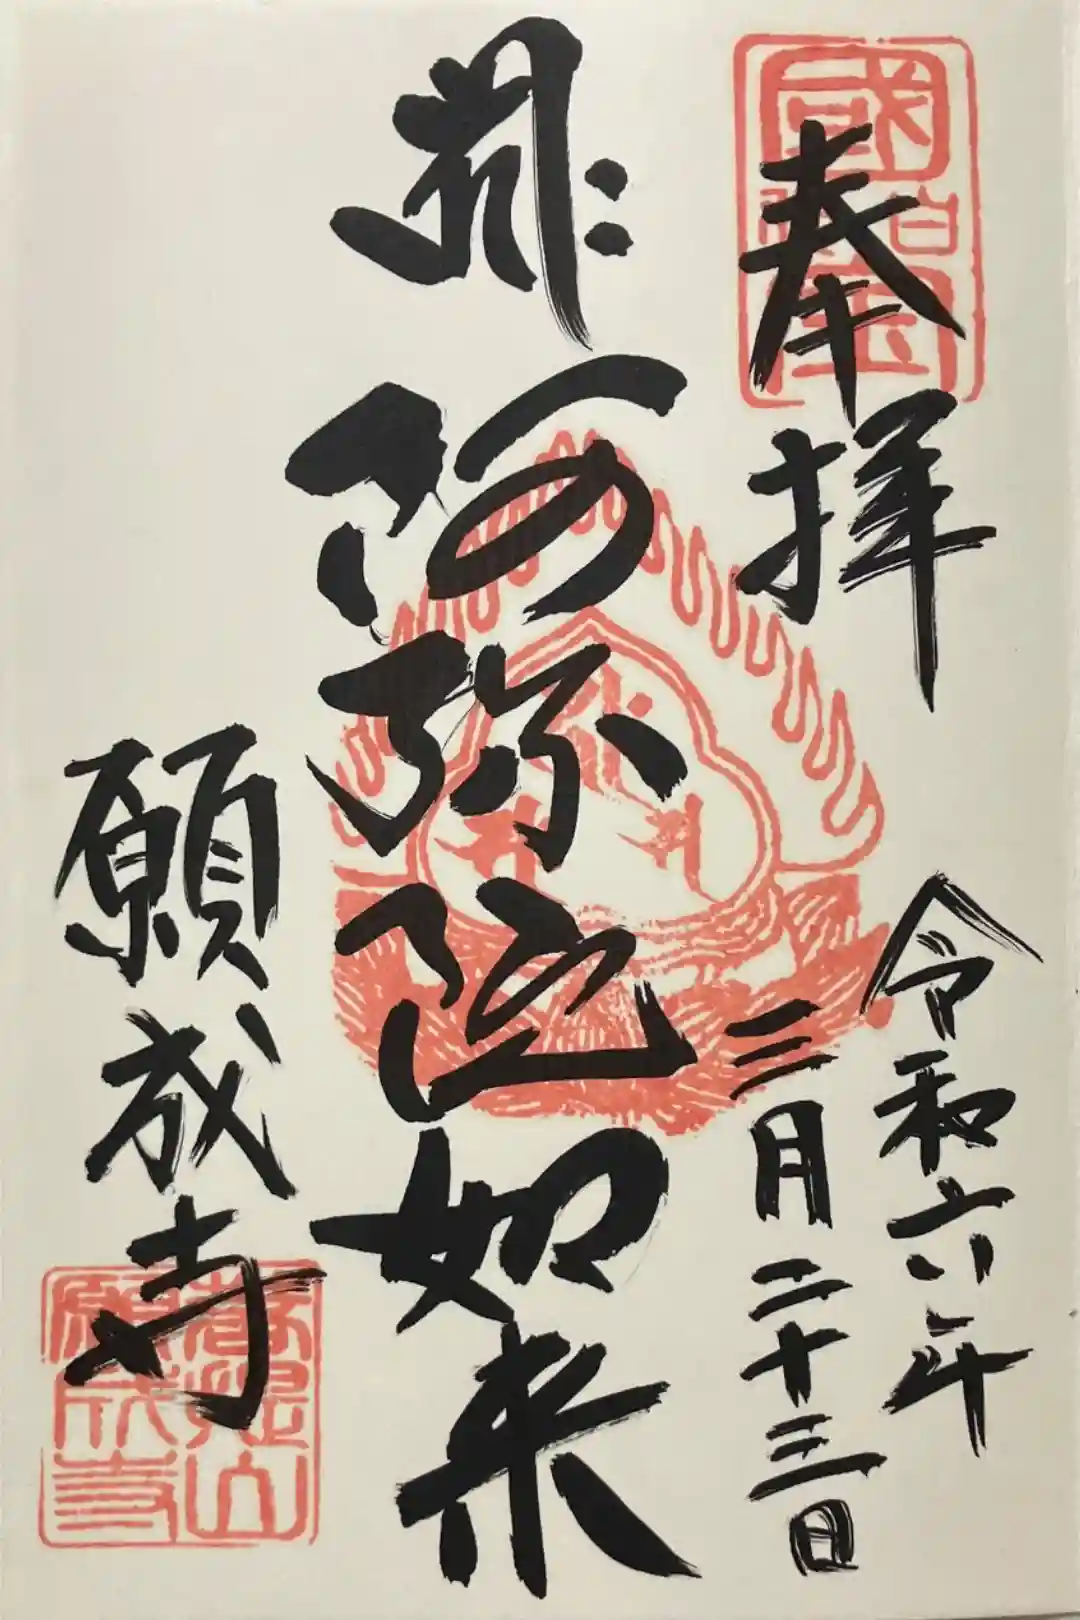 奉拝
令和六年
三月二十三日
阿弥陀如来
願成寺